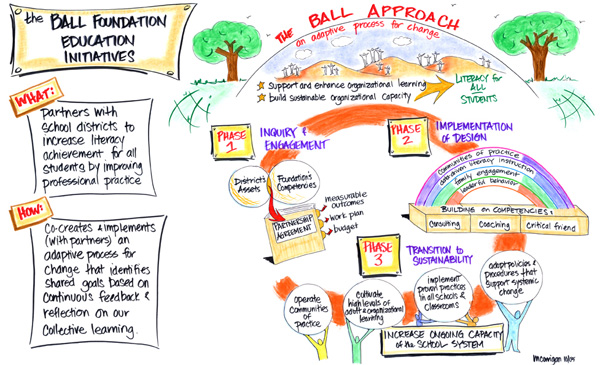 the BALL FOUNDATION
EDUCATION
INITIATIVES
WHAT:
Partners with
school districts to
increase literacy
achievement for all
students by improving
professional practice
HOW:
Co-creates & implements
(with partners) an
adaptive process for
change that identifies
shared goals based on
continuous feedback &
reflection on our
collective learning.
THE BALL APPROACH
an adaptive process for change
Support and enhance organizational learning
build sustainable organizational capacity
LITERACY for
ALL
STUDENTS
PHASE
1
INQUIRY &
ENGAGEMENT
District's
Assets
Foundation's
Competencies
PARTNERSHIP
AGREEMENT
measurable
outcomes
work plan
budget
PHASE
2
IMPLEMENTATION
OF DESIGN
Communities of practice
data-driven literacy instruction
family engagement
leaderful behavior
BUILDING on COMPETENCIES:
Consulting
Coaching
Critical friend
PHASE
3
TRANSITION to
SUSTAINABILITY
operate
communities
of
practice
Cultivate
high levels of
adult & organizational
learning
implement
proven practices
in all schools &
classrooms
adopt policies &
procedures that
support systemic
change
INCREASE ONGOING CAPACITY
of the SCHOOL SYSTEM